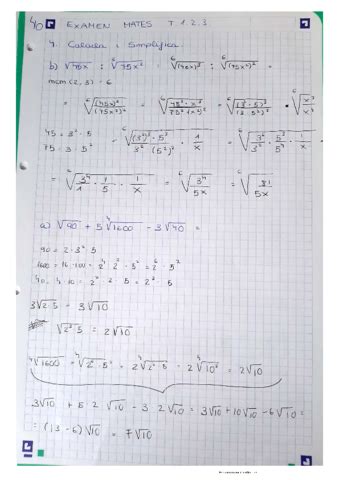 EXAMEN MATES T 1.2.3
7. Calcula i Simplifica
b) √45x : ∛75x² = ⁶√(45x)³ : ⁶√(75x²)² =
mcm (2,3) = 6
= ⁶√(45x)³/(75x²)² = ⁶√45³·x³/75²(x²)² = ⁶√(3²·5)³/(3·5²)² · ⁶√x³/x⁴
45 = 3²·5 = ⁶√(3²)³·5³/3²(5²)² · 1/x = ⁶√3⁶/3² · 5³/5⁴ · 1/x =
75 = 3·5²
= ⁶√3⁴/1 · 1/5 · 1/x = ⁶√3⁴/5x = ⁶√81/5x
a) √90 + 5 ⁴√1600 − 3√40 =
90 = 2·3²·5
1600 = 16·100 = 2⁴·2²·5² = 2⁶·5²
40 = 4·10 = 2²·2·5 = 2³·5
3√2·5 = 3√10
√2³·5 = 2√10
⁴√1600 = ⁴√2⁶·5² = 2⁴√2²·5² = 2⁴√10² = 2√10
3√10 + 5·2√10 − 3·2√10 = 3√10 + 10√10 − 6√10 =
= (13−6)√10 = 7√10